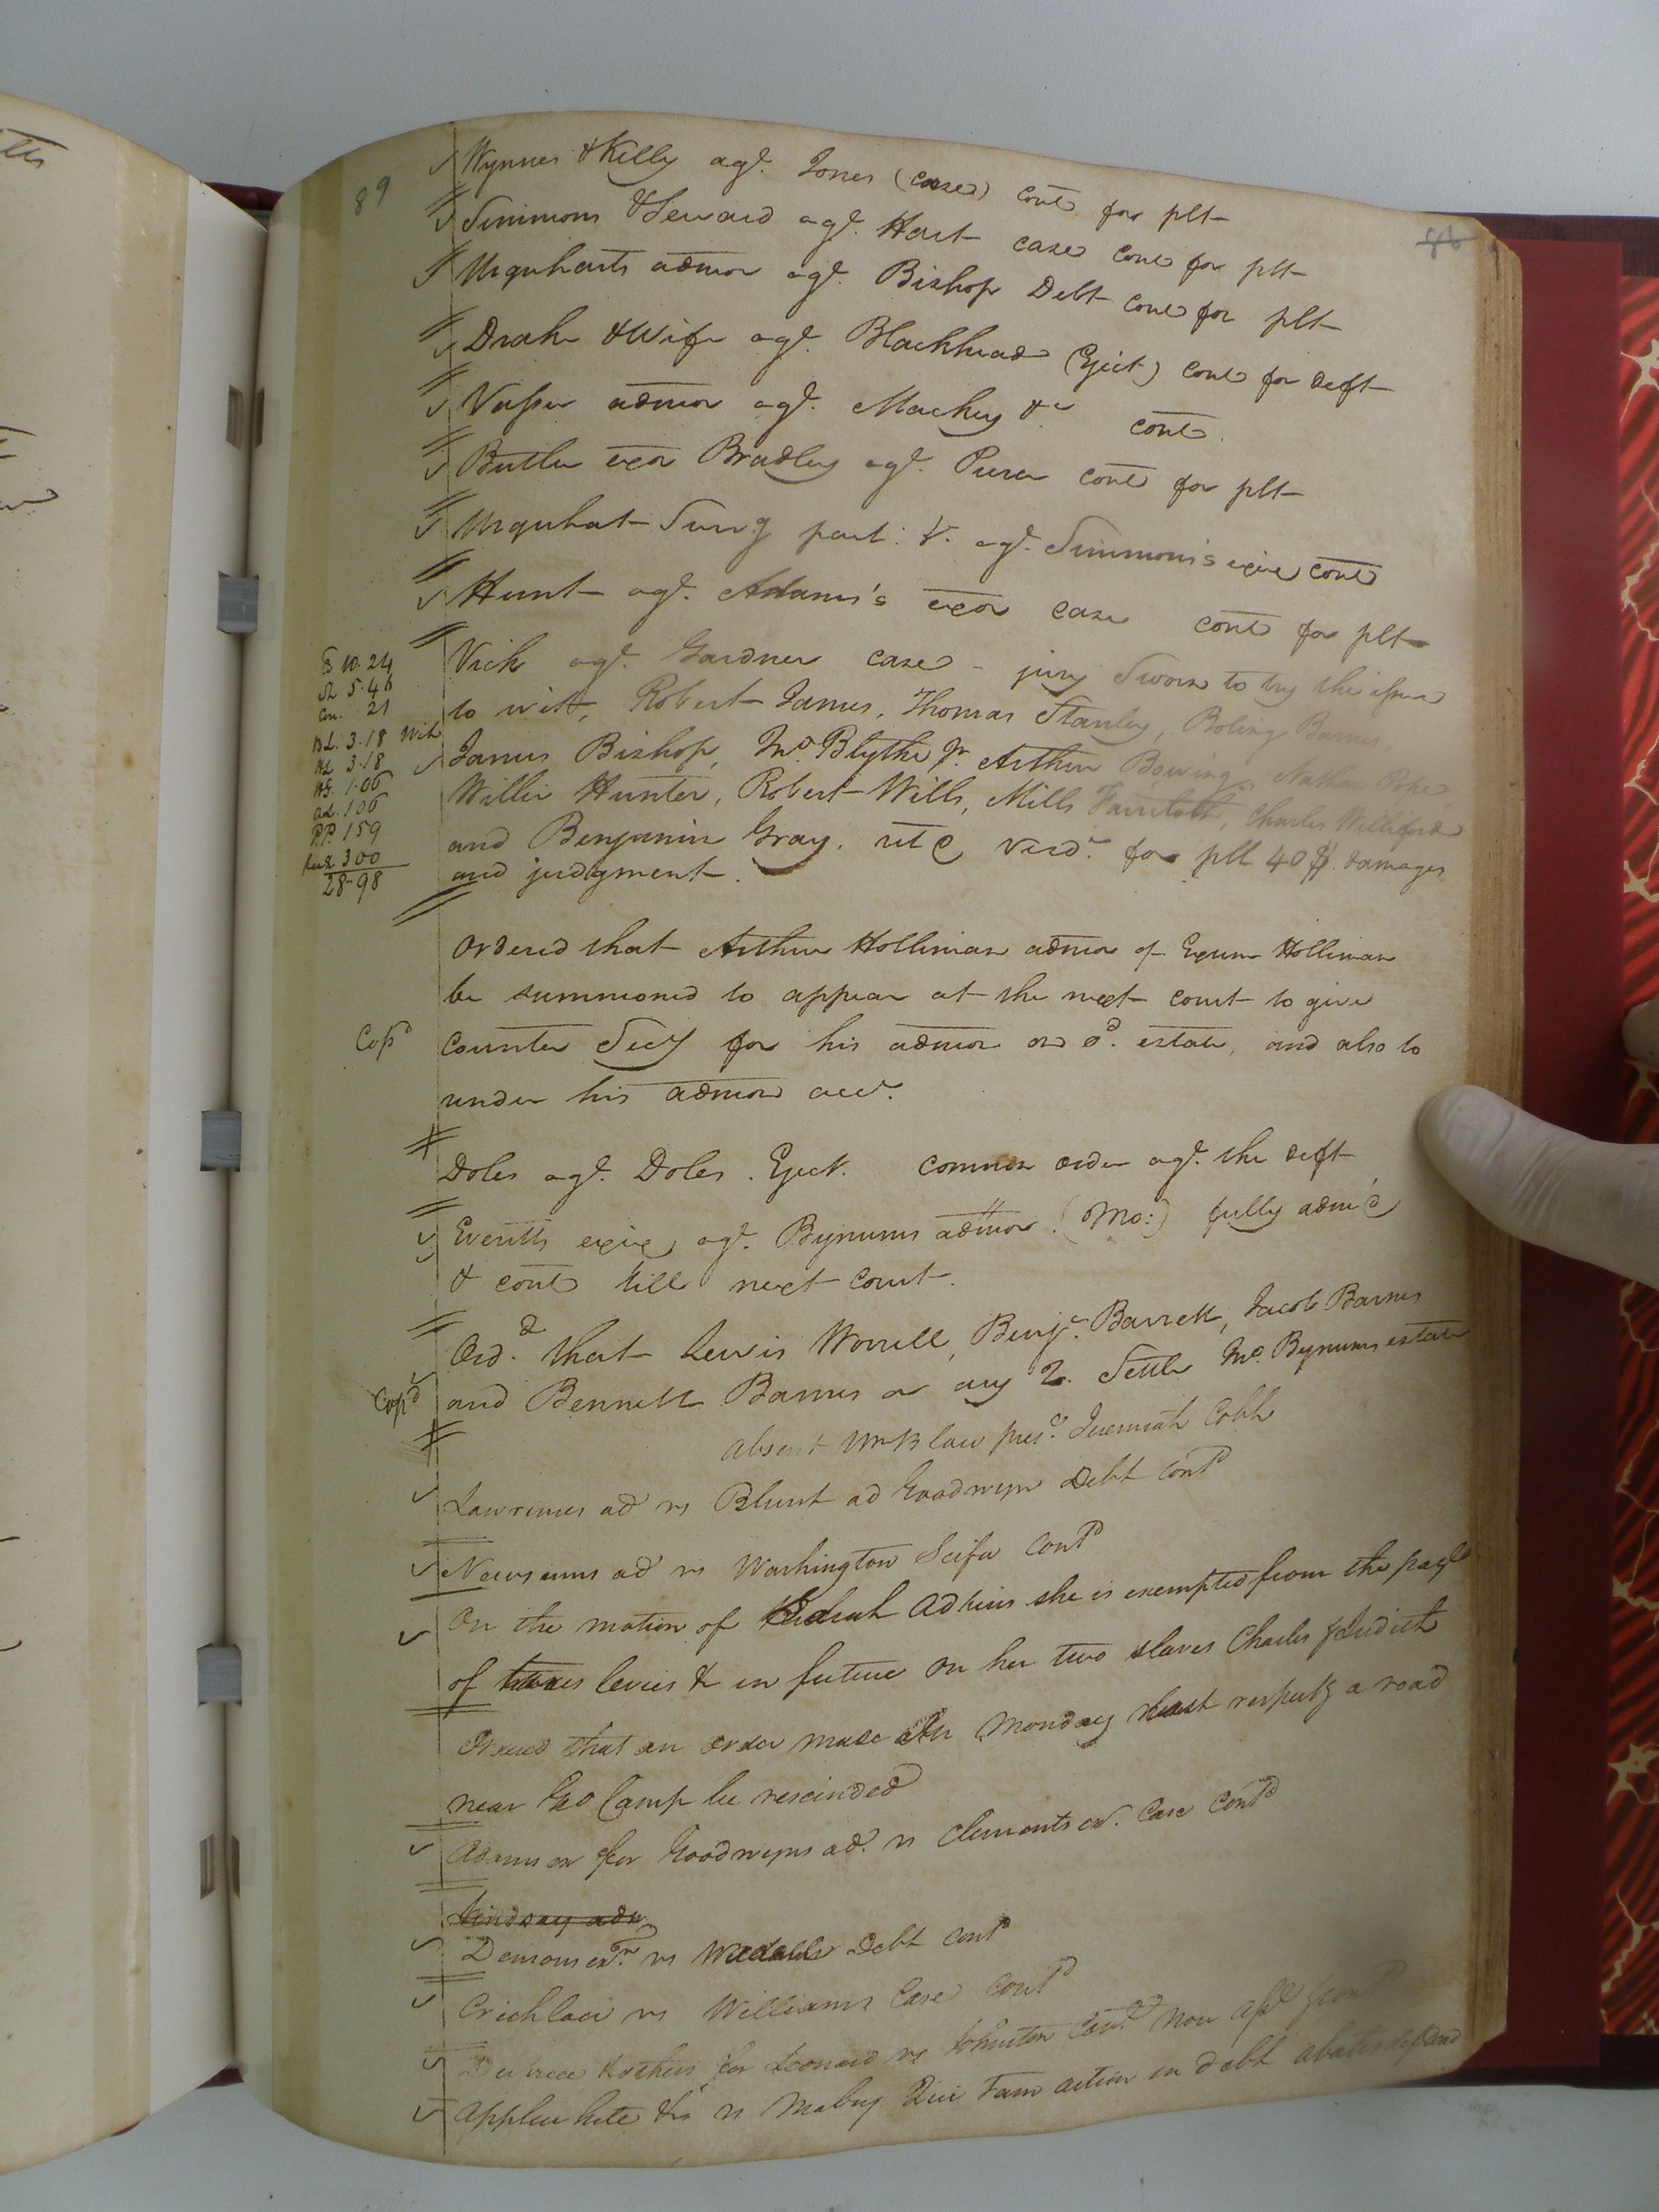 89
Wynnes & Kelly agt. Jones (case) cont for plt
Simmons & Seward agt. Hart case cont for plt
Urquharts admor agt. Bishop Debt cont for plt
Drake & Wife agt. Blackhead (Eject) cont for deft
Vasser admor agt. Mackey &c cont.
Butler exor Bradley agt. cont for plt
Urquhat Surv.g part: &. agt. Simmons's exix cont
Hunt agt. Adams's exor case cont for plt
Vick agt. Gardner case - jury Sworn to try the issue
to wit, Robert James, Thomas Stanley, Boling Barnes
James Bishop, Jno. Blythe Jr. Arthur Bowing, Nathan Pope
Willie Hunter, Robert Wills, Mills Faircloth, Charles Williford
and Benjamin Gray. ret & verdt. for plt 40$. damages
and judgment.
10.24
5.46
21
3.18 Wit
3.18
1.06
106
P.P. 159
300
28-98
Ordered that Arthur Holliman admor of Exum Holliman
be summoned to appear at the next court to give
Copd counter Secy for his admon on sd. estate, and also to
render his admon acct.
Doles agt. Doles. Eject. common order agt. the deft
Everitts exix agt. Bynums admor (Mo:) fully adm'd
& cont till next court.
Ord. that Lewis Worrell, Benja. Barrett, Jacob Barnes
Cop'd and Bennett Barnes or any 2. Settle Jno. Bynums estate
absent Wm B law prest. Jeremiah Cobb
Lawrences ad vs Blunt ad Goodwyn Debt contd
Newsums ad vs Washington Scifa contd
On the motion of Adkins she is exempted from the paymt
of taxes levies & in future on her two slaves Charles & Judith
Ordered that an order made on Monday last respectg a road
near Geo Camp be rescinded
Adams ex for Goodwyns ad. vs Clements ex. Case contd
Lindsay adm
exr. vs Debt contd
Crichlow vs Williams Case contd
& others for Leonard vs Johnston
Applewhite &c vs Mabry Qui Tam action in debt abates